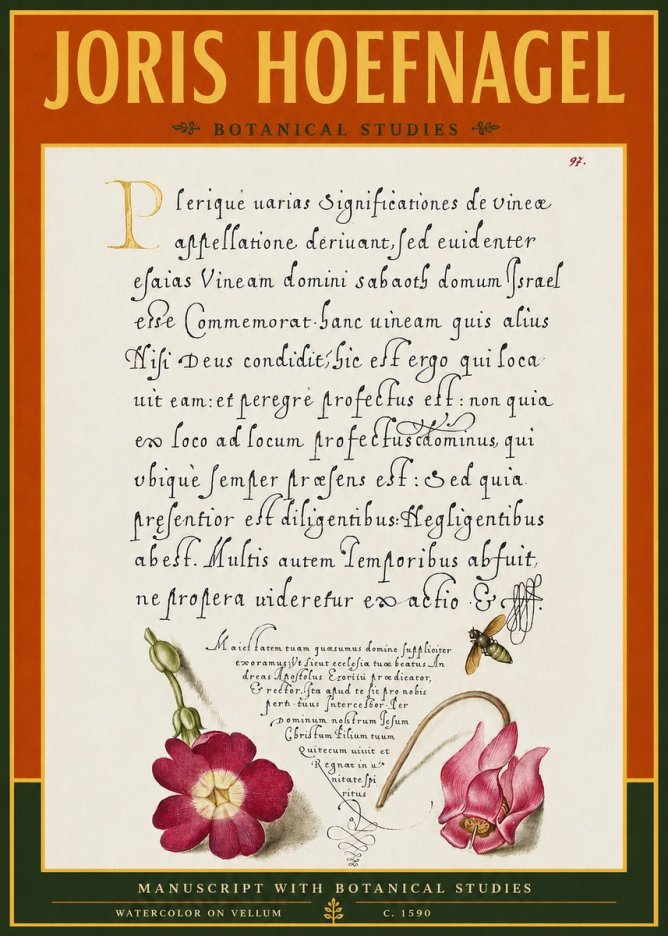 JORIS HOEFNAGEL
BOTANICAL STUDIES
97.
Pleriquè uarias Significationes de vineæ
appellatione deriuant, sed euidenter
esaias Vineam domini sabaoth domum Israel
esse Commemorat. hanc uineam quis alius
Nisi Deus condidit, hic est ergo qui loca
uit eam: et peregrè profectus est: non quia
ex loco ad locum profectus dominus, qui
vbiquè semper præsens est: Sed quia
præsentior est diligentibus: Negligentibus
abest. Multis autem Temporibus abfuit,
ne propera uideretur exactio. &
Maiestatem tuam quæsumus domine suppliciter
exoramus, Vt sicut ecclesia tuæ beatus An
dreas Apostolus Exoriti prædicator,
& rector. Ita apud te sit pro nobis
pert. tuus Intercessor. Per
Dominum nostrum Iesum
Christum Filium tuum
Quitecum uiuit et
Regnat in u
nitate spi
ritus
MANUSCRIPT WITH BOTANICAL STUDIES
WATERCOLOR ON VELLUM C. 1590